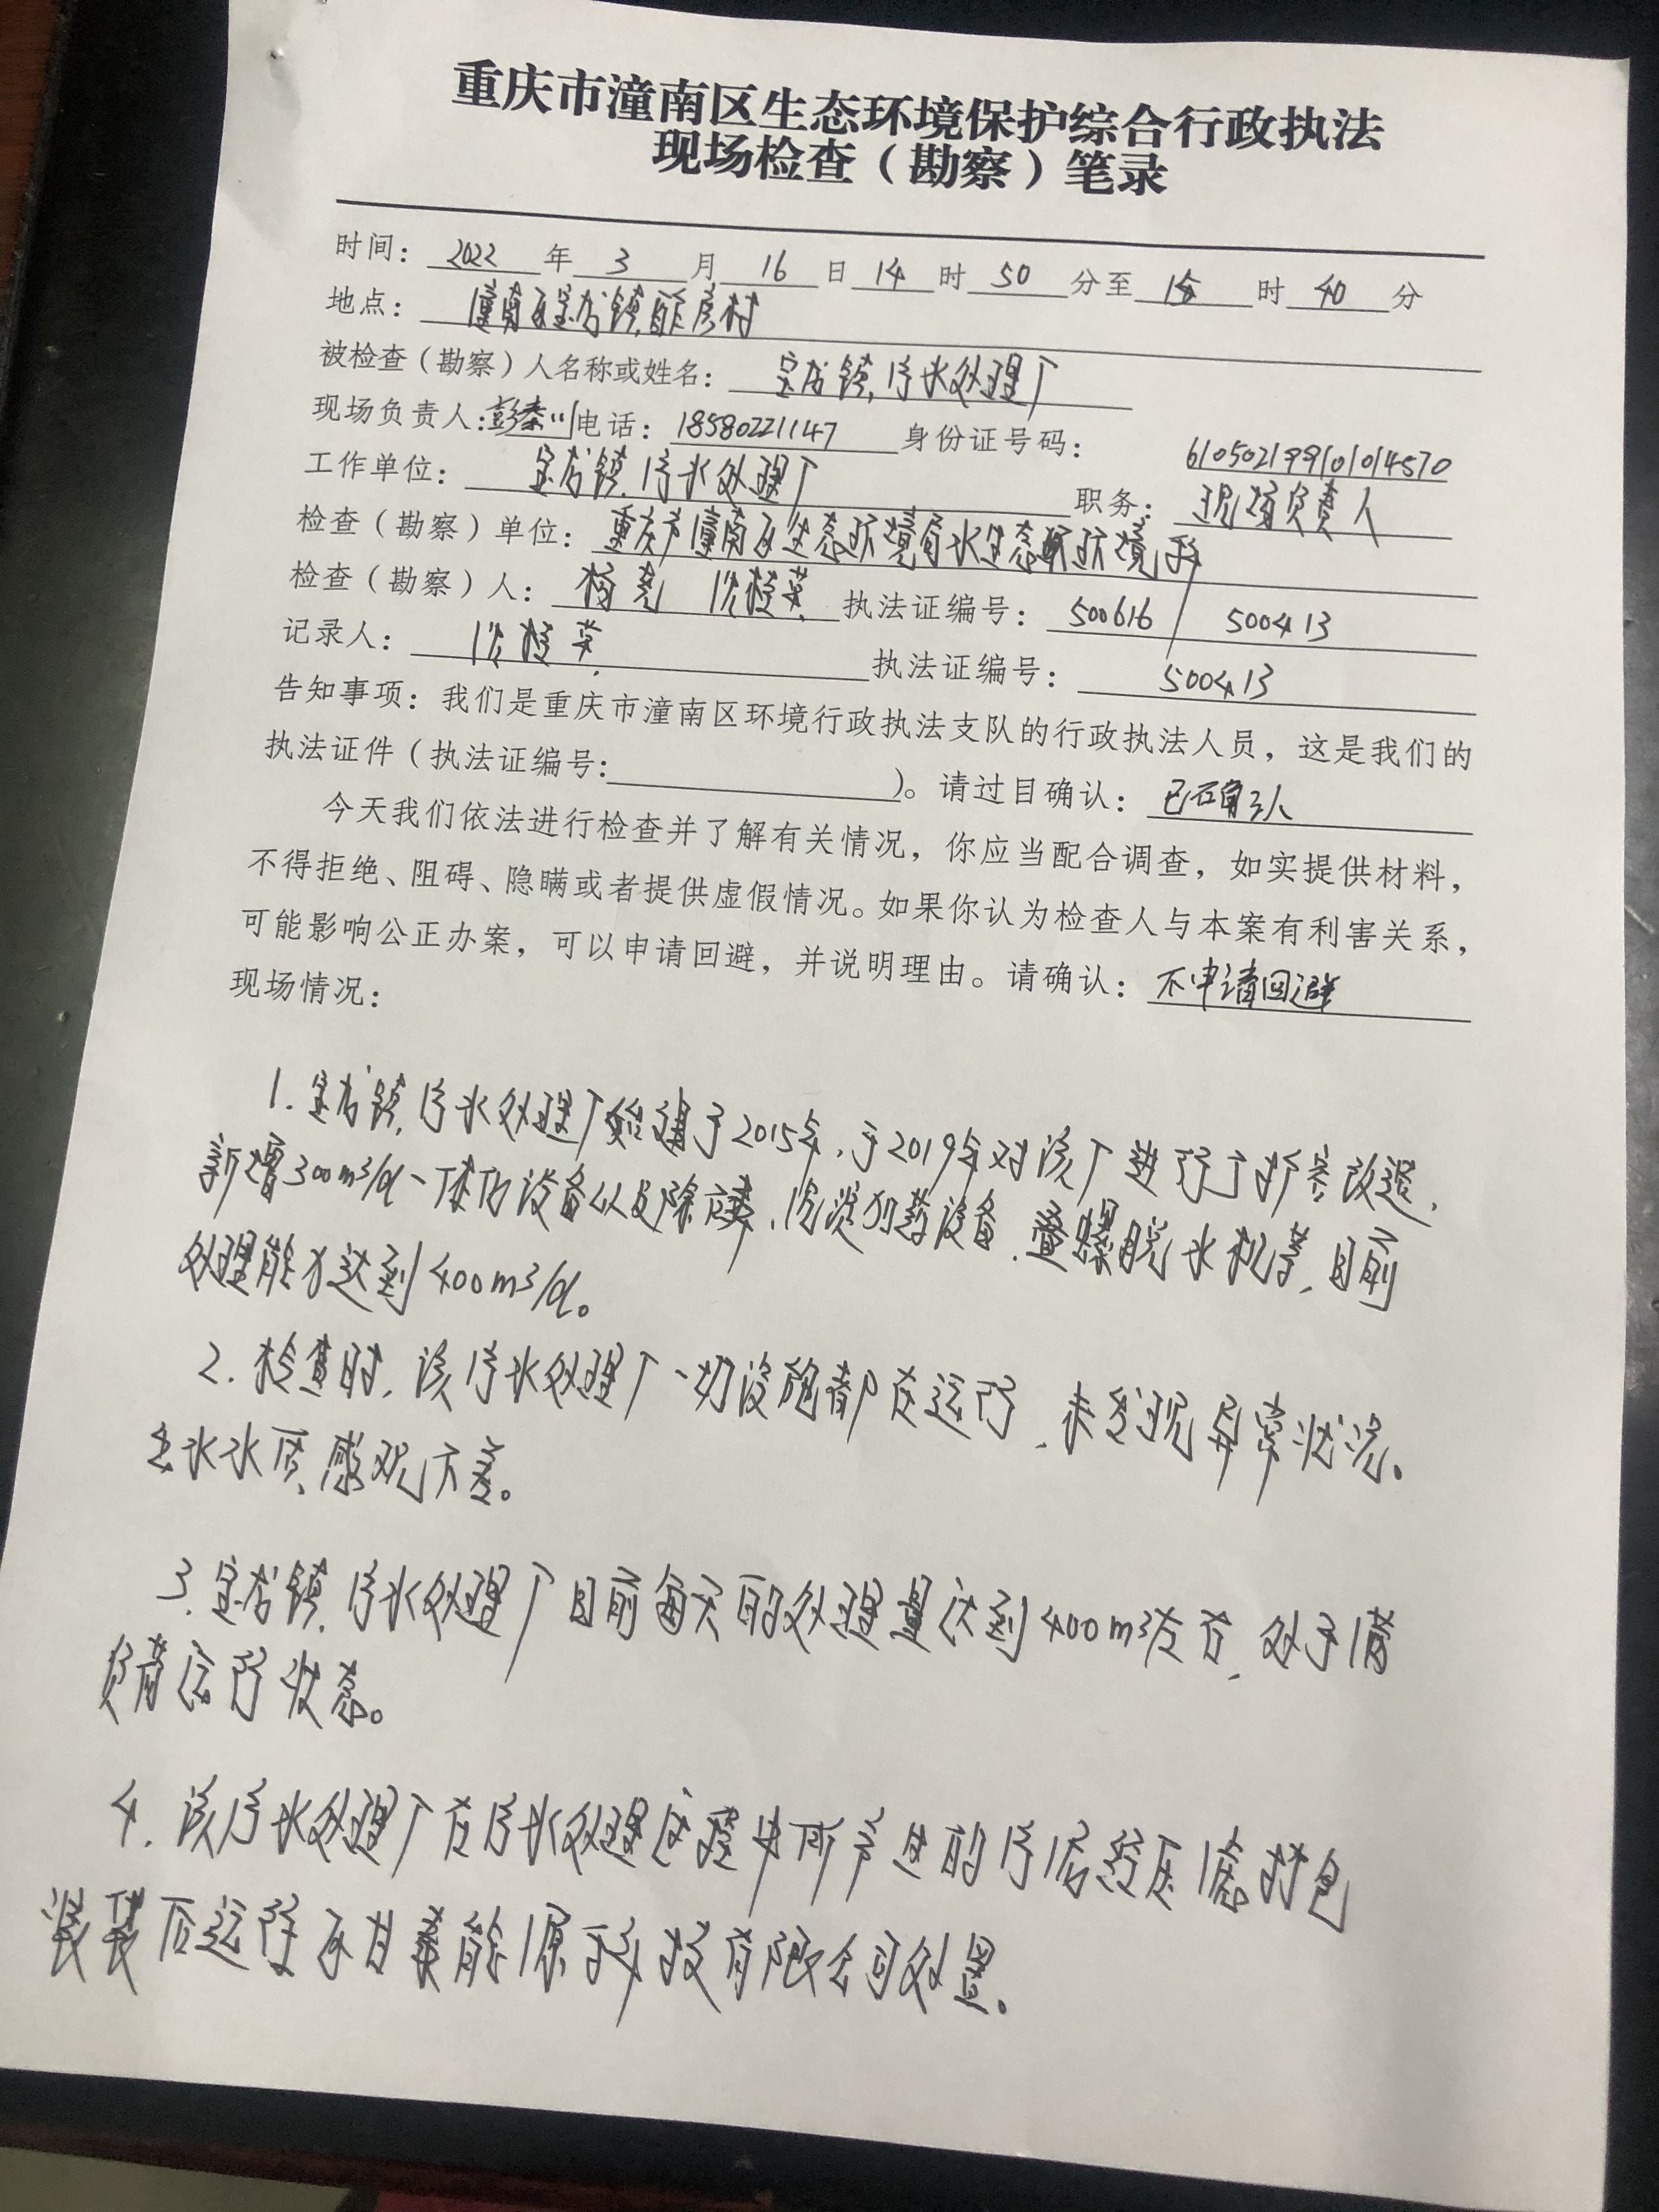 重庆市潼南区生态环境保护综合行政执法
现场检查（勘察）笔录
时间：2022年3月16日14时50分至15时40分
地点：潼南区宝龙镇房村
被检查（勘察）人名称或姓名：宝龙镇污水处理厂
现场负责人：彭秦川电话：18580221147 身份证号码：610502199101014570
工作单位：宝龙镇污水处理厂 职务：现场负责人
检查（勘察）单位：重庆市潼南区生态环境局水生态环境科
检查（勘察）人：杨尧 执法证编号：500616 / 500413
记录人： 执法证编号：500413
告知事项：我们是重庆市潼南区环境行政执法支队的行政执法人员，这是我们的
执法证件（执法证编号：）。请过目确认：已确认
今天我们依法进行检查并了解有关情况，你应当配合调查，如实提供材料，
不得拒绝、阻碍、隐瞒或者提供虚假情况。如果你认为检查人与本案有利害关系，
可能影响公正办案，可以申请回避，并说明理由。请确认：不申请回避
现场情况：
1.宝龙镇污水处理厂始建于2015年，于2019年对该厂进行了扩容改造，
新增300m³/d一体化设备以及除磷、沉淀加药设备、叠螺脱水机等，目前
处理能力达到400m³/d。
2.检查时，该污水处理厂一切设施都在运行，未发现异常状况。
出水水质感观不差。
3.宝龙镇污水处理厂目前每天的处理量达到400m³左右，处于满
负荷运行状态。
4.该污水处理厂在污水处理过程中所产生的污泥经压滤打包
装袋后运往区甘能源科技有限公司处置。